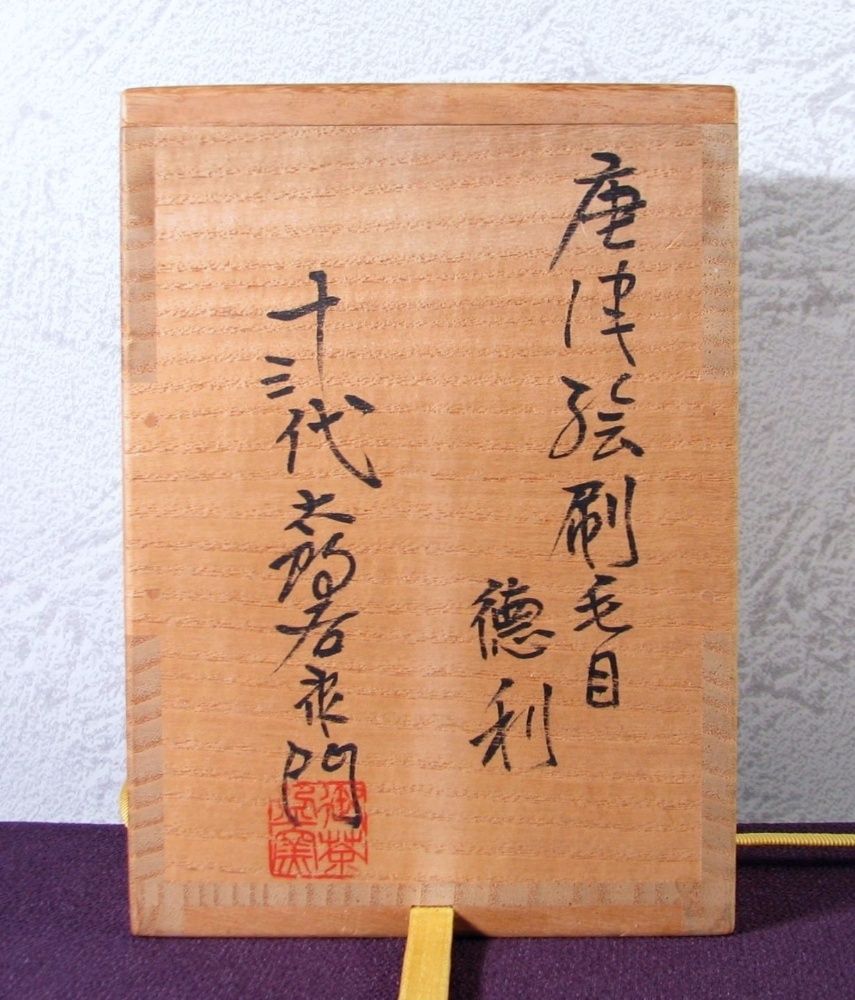 唐津絵刷毛目
徳利
十三代 太郎右衛門
御茶盌窯